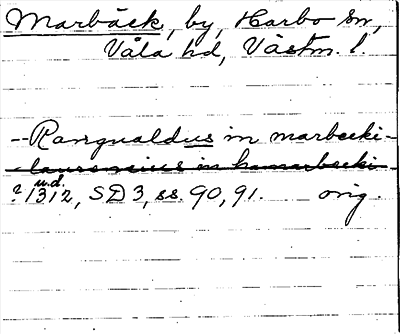 Marbäck, by, Harbo sn,
Våla hd, Västm. l.
--Rangualdus in marbecki--
laurencius in hamarbecki
? u.d. 1312, SD 3, ss. 90, 91. orig.